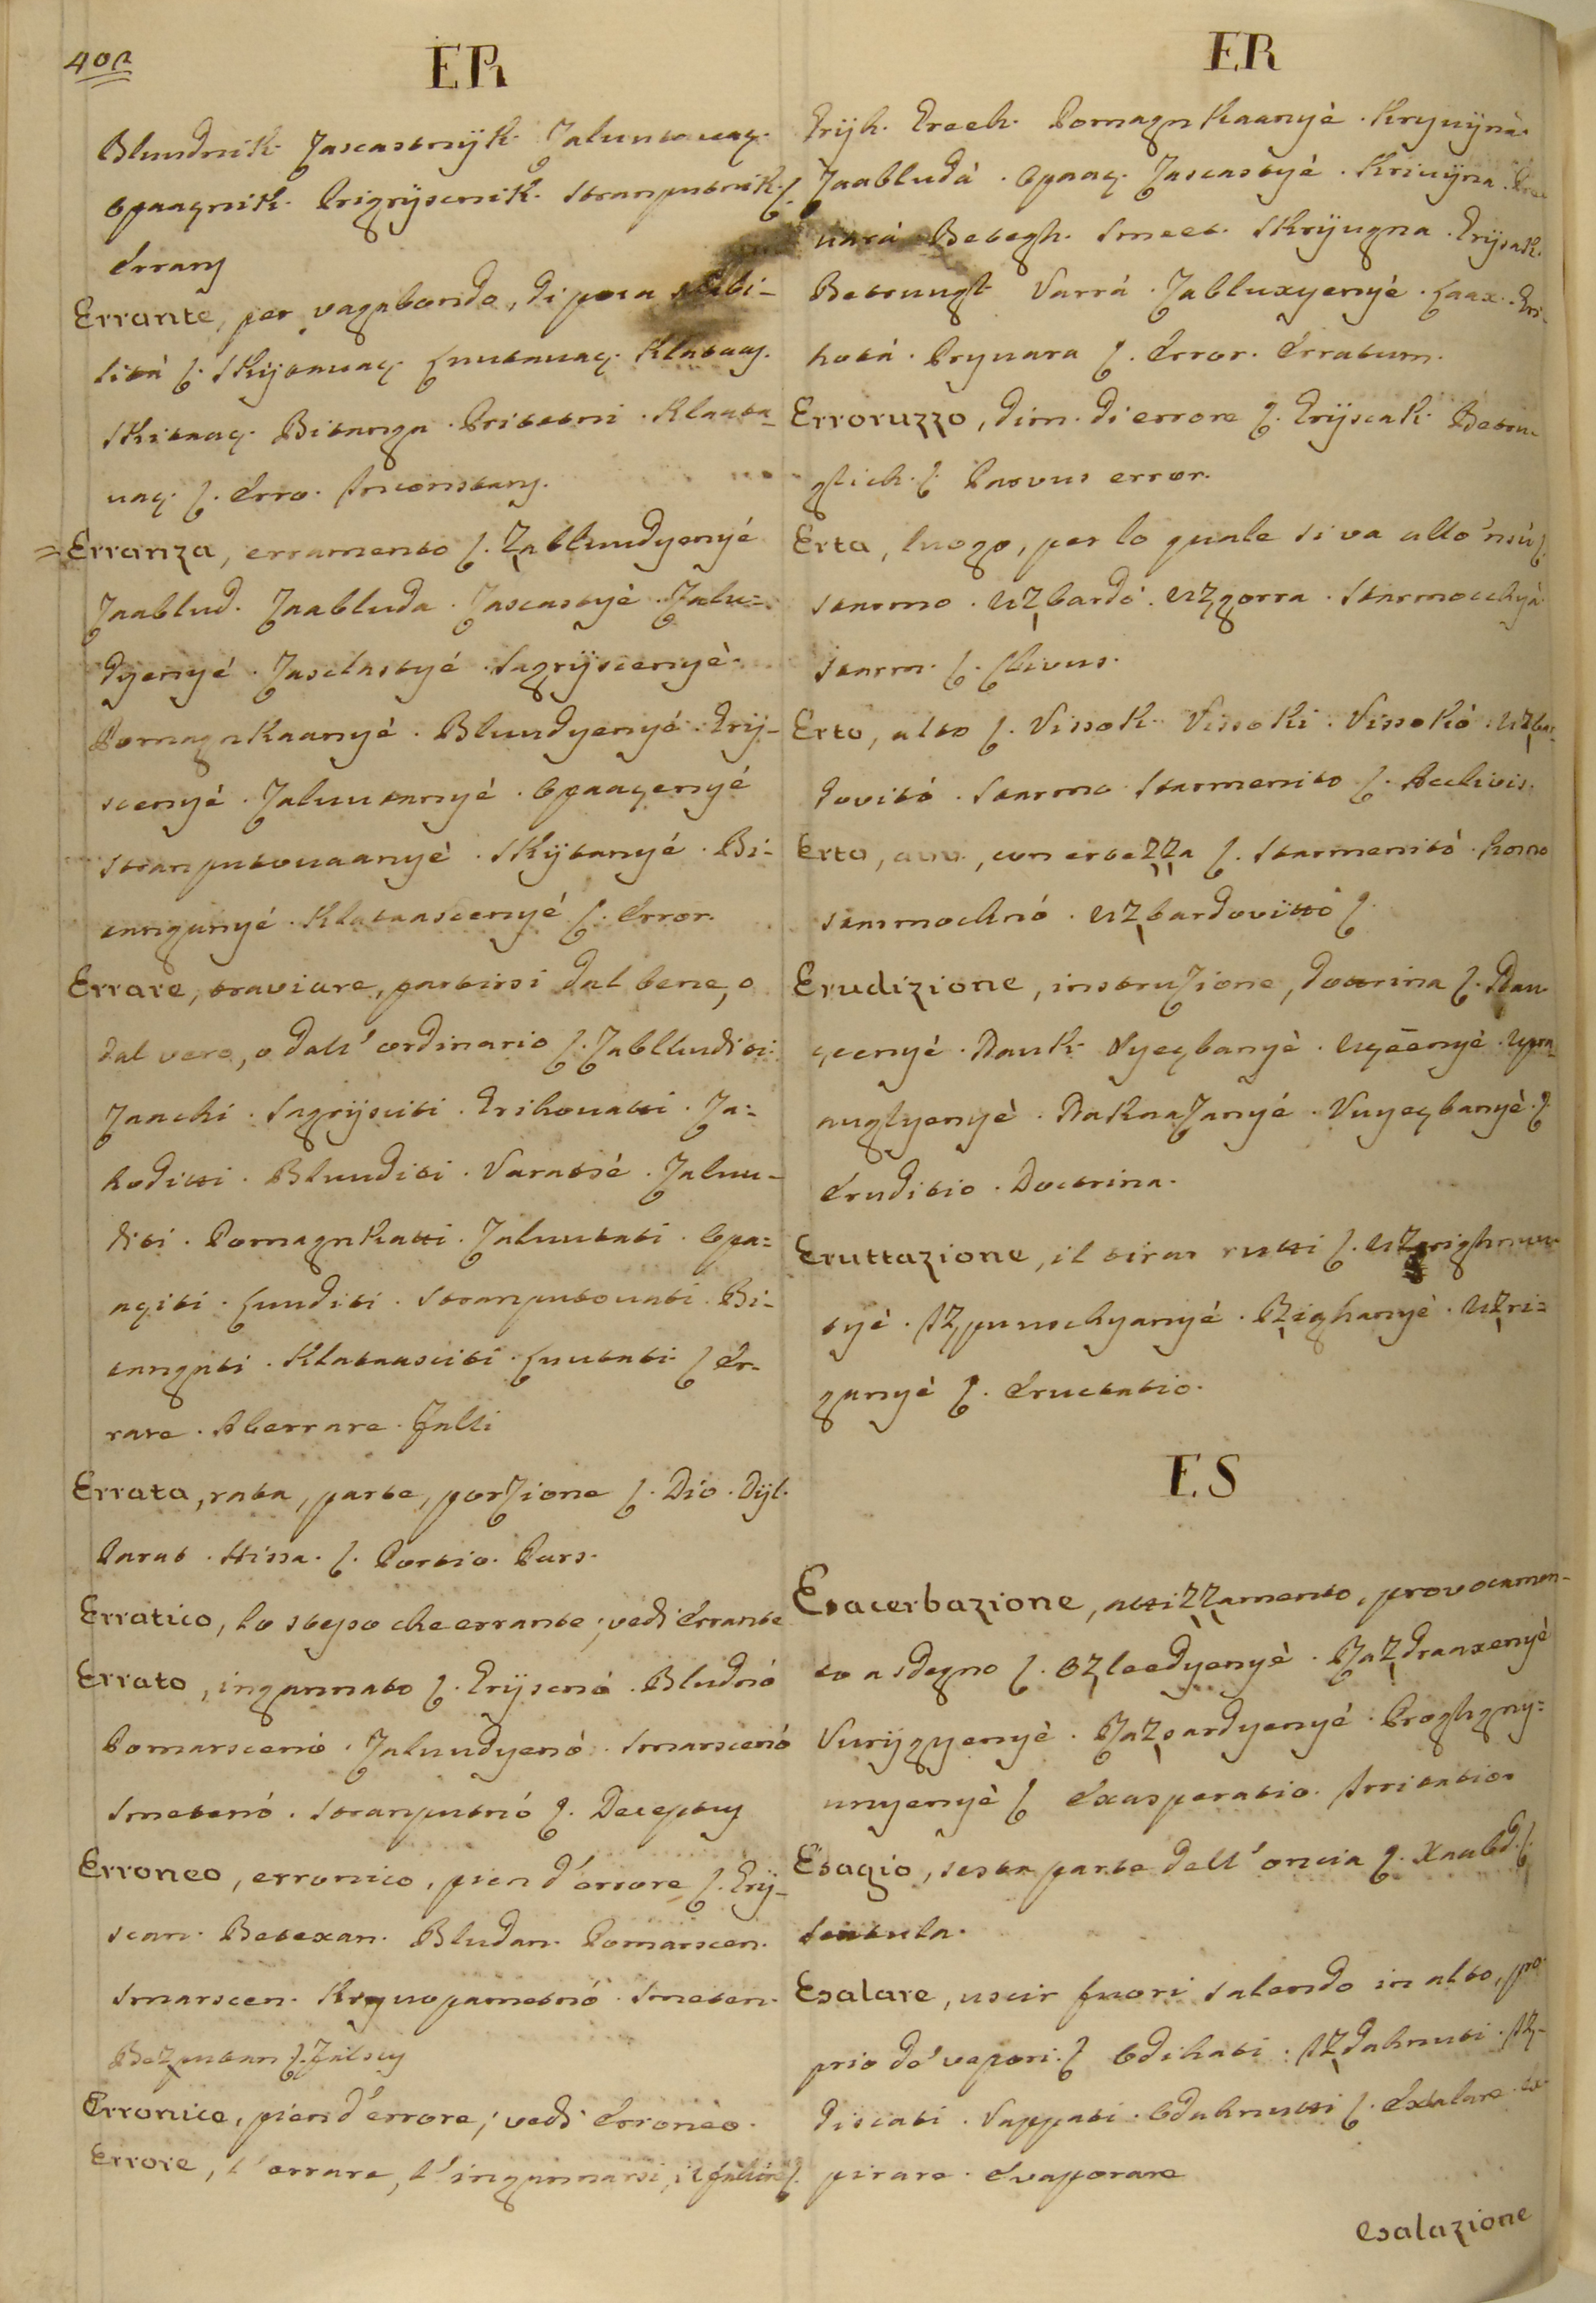 402
ER
Bluudnik. Zascastnÿk. Zaluutauaç.
Opaaçnik. Prigrÿscnik. Stranputnik. ʃ.
Errans
Errante, per vagabondo, di poca stabi-
lità ʃ. Skÿtauaç. Luutauaç. Klataaç.
Skitaaç. Bitanga. Pritetni. Klaata-
uaç. ʃ. Erro. Inconstans.
=Erranza, erramento ʃ. Zabluudyenyé
Zaablud. Zaabluda. Zascastyè. Zalu=
dyenyé. Zasclastyé. Sagrÿscenyè.
Pomagnkaanyè. Bluudyenyé. Grÿ-
scenyé. Zaluutanyè. Opaaçenyé
Stranputouaanyè. Skÿtanyé. Bi-
tanganyé. Klataascenyé ʃ. Error.
Errare, traviare, partirsi dal bene, o
dal vero, o dall' ordinario ʃ. Zablluditi.
Zaachi. Sagrÿsciti. Grihouatti. Za=
hoditti. Bluuditi. Varatsè. Zaluu-
diti. Pomagnkatti. Zaluutati. Opa=
açiti. Luuditi. Stranputouati. Bi-
tangati. Klataasciti. Luutati ʃ. Er-
rare. Aberrare. Falli
Errata, rata, parte, porzione ʃ. Dio. Dÿl.
Parat. Hissa. ʃ. Portio. Pars.
Erratico, lo stesso che errante; vedi Errante
Errato, ingannato ʃ. Grÿscnó. Bludnó
Pomarscenó. Zaluudyenó. Smarscenó
Smetenó. Stranputnó ʃ. Deceptus
Erroneo, erronico, pien d'errore ʃ. Grÿ-
scan. Betexan. Bludan. Pomarscen.
Smarscen. Kryuopametnó. Smeten.
Bezputan ʃ. Falsus
Erronico, pien d'errore; vedi Erroneo.
Errore, l'errare, l'ingannarsi, il fallire ʃ.
ER
Grÿh. Greeh. Pomagnkaanyè. Kryuÿna.
Zaabludà. Opaaç. Zascastyé. Kriuÿna.
uará Betegh. Smeet. Skrÿugna. Grÿsak.
Betrungt Varrá. Zabluxyenyè. Laax. Gri-
hotá. Pryuara ʃ. Error. Erratum.
Erroruzzo, dim. di errore ʃ. Grÿscak. Betru-
glich. ʃ. Parvus error.
Erta, luogo, per lo quale si va allo 'nsù ʃ.
Starmo. Uzbardó. Uzgorra. Starmocchyà
Starm. ʃ. Clivus.
Erto, alto ʃ. Vissok. Vissoki. Vissokó. Uzbar-
dovitó. Starmo Starmenito ʃ. Acclivis.
Erto, avv., con ertezza ʃ. Starmenitó. homo
Starmochnó. Uzbardovittó ʃ.
Erudizione, instruzione, dottrina ʃ. Nau-
çcenyé. Nauk. Vyeçbanyè. Uçēenyè. Upra-
auglyenyè. Naknazanyé. Vuyeçbanyè. ʃ.
Eruditio. Doctrina.
Eruttazione, il tirar rutti ʃ.
tyé. Izpuuchyanyé. Rzighanyè. Uzri=
ganyè ʃ. Eructatio.
ES
Esacerbazione, attizzamento, provocamen-
to a sdegno ʃ. Ozleedyenyè. Razdraaxenyè
Vurÿgyenyè. Razsardyenyé. Proghgny=
unyenyè ʃ. Exasperatio. Irritatio.
Esagio, sesta parte dell' oncia ʃ. Xaabd. ʃ.
Sextula.
Esalare, uscir fuori salendo in alto, pro-
prio de' vapori. ʃ. Odihati. Izdahnuti. Iz-
discati. Vappati. Odahnutti ʃ. Exalare. Ex-
pirare. Evaporare
Esalazione